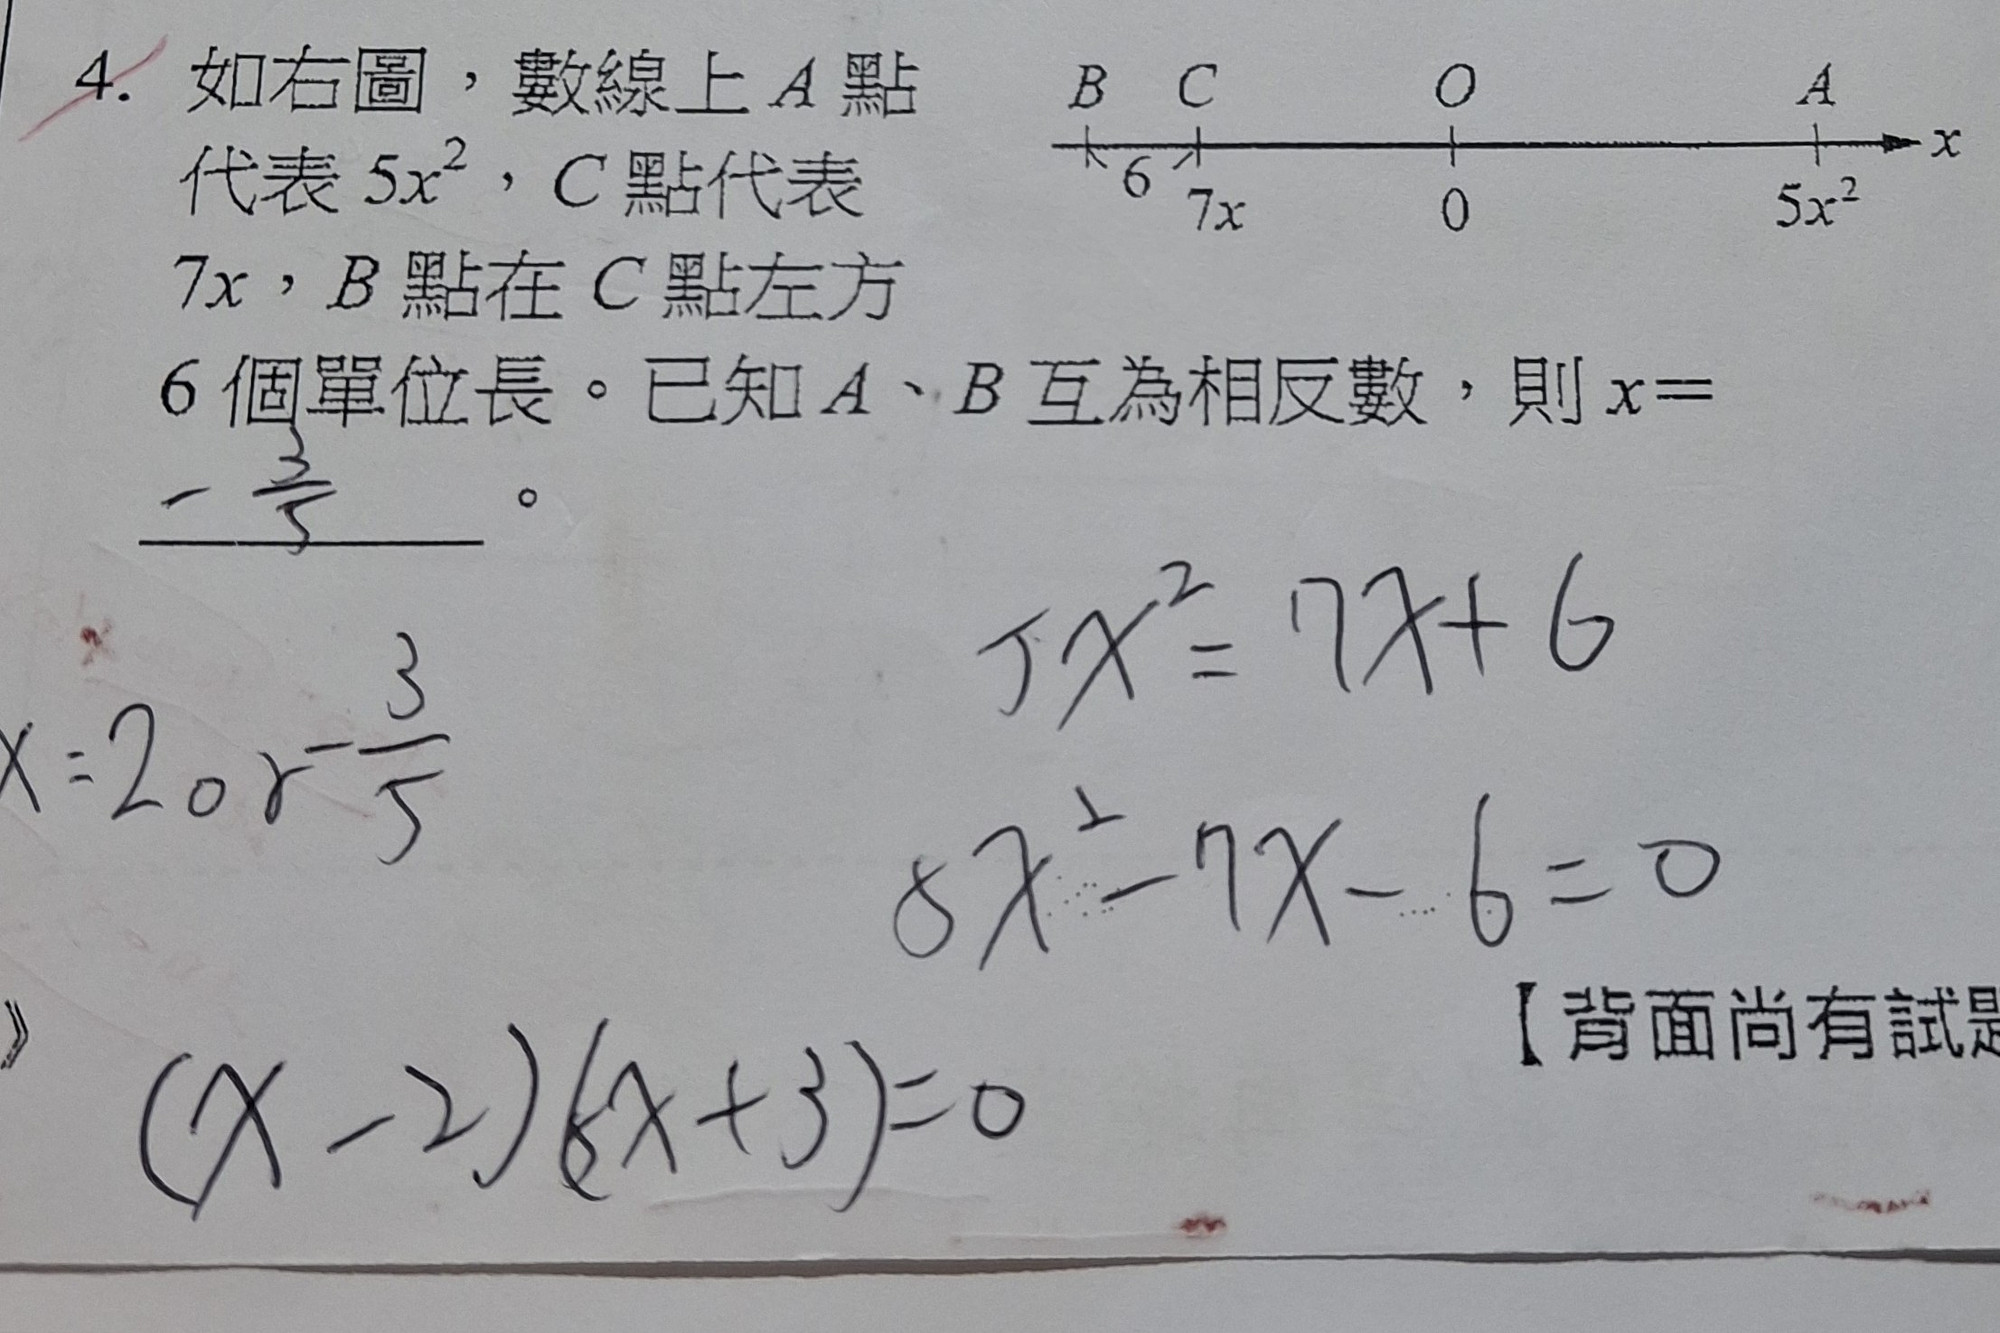 4. 如右圖，數線上 A 點
代表 5x²，C 點代表
7x，B 點在 C 點左方
6 個單位長。已知 A、B 互為相反數，則 x＝
-3/5 。
B C O A
x
6 7x 0 5x²
5x² = 7x + 6
x = 2 or -3/5
5x² - 7x - 6 = 0
》
【背面尚有試題
(x - 2)(5x + 3) = 0